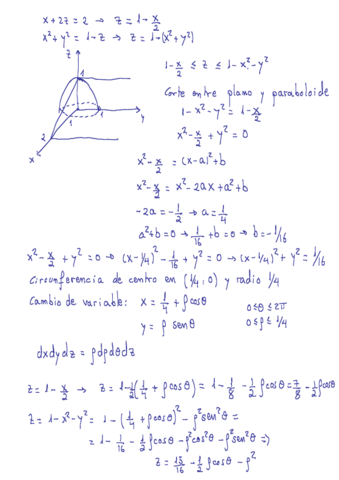 x + 2z = 2 → z = 1 - x/2
x² + y² = 1 - z → z = 1 - (x² + y²)
z
1
1
1
y
2
x
1 - x/2 ≤ z ≤ 1 - x² - y²
Corte entre plano y paraboloide
1 - x² - y² = 1 - x/2
x² - x/2 + y² = 0
x² - x/2 = (x - a)² + b
x² - x/2 = x² - 2ax + a² + b
-2a = -1/2 → a = 1/4
a² + b = 0 → 1/16 + b = 0 → b = -1/16
x² - x/2 + y² = 0 → (x - 1/4)² - 1/16 + y² = 0 → (x - 1/4)² + y² = 1/16
Circunferencia de centro en (1/4, 0) y radio 1/4
Cambio de variable: x = 1/4 + ρcosθ 0 ≤ θ ≤ 2π
y = ρ senθ 0 ≤ ρ ≤ 1/4
dxdydz = ρdρdθdz
z = 1 - x/2 → z = 1 - 1/2(1/4 + ρcosθ) = 1 - 1/8 - 1/2 ρcosθ = 7/8 - 1/2 ρcosθ
z = 1 - x² - y² = 1 - (1/4 + ρcosθ)² - ρ²sen²θ =
= 1 - 1/16 - 1/2 ρcosθ - ρ²cos²θ - ρ²sen²θ ⇒
z = 15/16 - 1/2 ρcosθ - ρ²